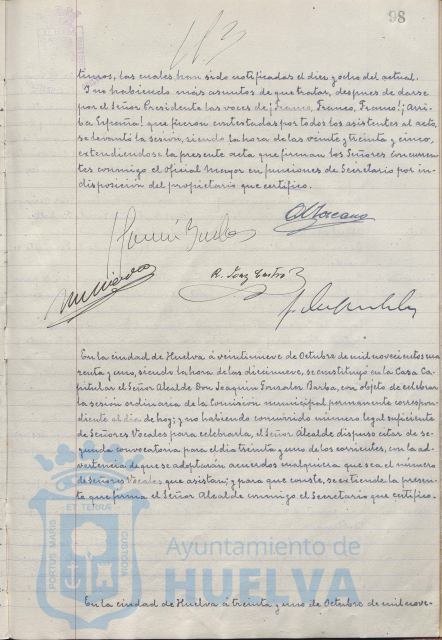 98
timos, las cuales han sido notificadas el diez y ocho del actual.
Y no habiendo más asuntos de que tratar, despues de darse
por el Señor Presidente las voces de ¡Franco, Franco, Franco! ¡Arri-
ba España! que fueron contestadas por todos los asistentes al acto,
se levantó la sesión, siendo la hora de las veinte y treinta y cinco,
extendiéndose la presente acta que firman los Señores concurren-
tes conmigo el oficial Mayor en funciones de Secretario por in-
disposición del propietario que certifico.
En la ciudad de Huelva á veintinueve de Octubre de mil novecientos cua
renta y uno, siendo la hora de las diecinueve, se constituyó en la Casa Ca-
pitular el Señor Alcalde Don Joaquin Gonzalez Barba, con objeto de celebrar
la sesión ordinaria de la Comisión municipal permanente correspon-
diente al dia de hoy; y no habiendo concurrido número legal suficiente
de Señores Vocales para celebrarla, el Señor Alcalde dispuso citar de se-
gunda convocatoria para el dia treinta y uno de los corrientes, con la ad-
vertencia de que se adoptarán acuerdos cualquiera que sea el número
de Señores Vocales que asistan; y para que conste, se extiende la presen-
te que firma el Señor Alcalde conmigo el Secretario que certifico.
ET TERRA
PORTUS MARIS
CUSTODIA
Ayuntamiento de
HUELVA
En la ciudad de Huelva á treinta y uno de Octubre de mil nove-